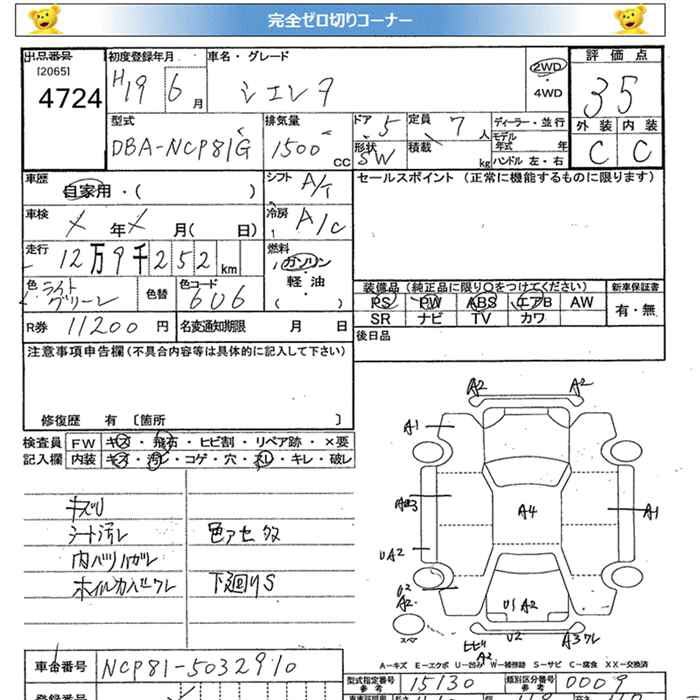 完全ゼロ切りコーナー
出品番号
[2065]
4724
初度登録年月
H19 6 月
車名・グレード
シエンタ
2WD
・
4WD
評価点
3 5
外装 内装
C C
型式
DBA-NCP81G
排気量
1500 cc
ドア 5
定員 7 人
形状 SW
積載 kg
ディーラー・並行
モデル年式 年
ハンドル 左・右
車歴
自家用・( )
シフト A/T
車検
メ 年 メ 月( 日)
冷房 A/C
走行
12万9千252km
燃料
ガソリン
軽油
( )
色 ライトグリーン
色替
色コード 6U6
R券 11200 円
名変通知期限 月 日
セールスポイント (正常に機能するものに限ります)
装備品(純正品に限り○をつけてください)
新車保証書
PS PW ABS エアB AW
SR ナビ TV カワ
有・無
後日品
注意事項申告欄(不具合内容等は具体的に記入して下さい)
修復歴 有 〔箇所 〕
検査員 FW キズ・飛石・ヒビ割・リペア跡・×要
記入欄 内装 キズ・汚レ・コゲ・穴・スレ・キレ・破レ
キズU
シート汚レ
内ハリハガレ
ホイルカバーワレ
色アセ
下廻りS
A2 A2
A1
A4
A1
UA2
U2
A2
U1 A2
スペア
ヒビ
A2
U2
A3ワレ
A―キズ E―エクボ U―凹み W―補修跡 S―サビ C―腐食 XX―交換済
車台番号 NCP81-5032910
型式指定番号
参考
15130
類別区分番号
参考
0009